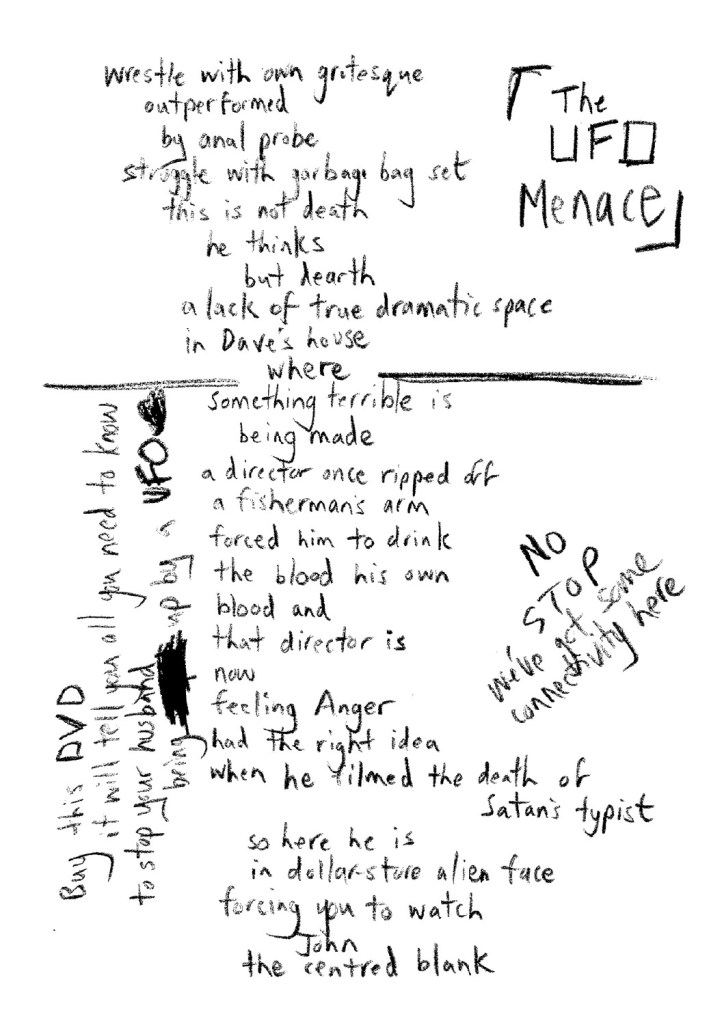 wrestle with own grotesque
outperformed
by anal probe
struggle with garbage bag set
this is not death
he thinks
but dearth
a lack of true dramatic space
in Dave's house
where
「The
UFO
Menace」
something terrible is
being made
a director once ripped off
a fisherman's arm
forced him to drink
the blood his own
blood and
that director is
now
feeling Anger
had the right idea
when he filmed the death of
Satan's typist
so here he is
in dollar-store alien face
forcing you to watch
John
the centred blank
Buy this DVD
it will tell you all you need to know
to stop your husband
being up by a UFO
NO
STOP
we've got some
connectivity here